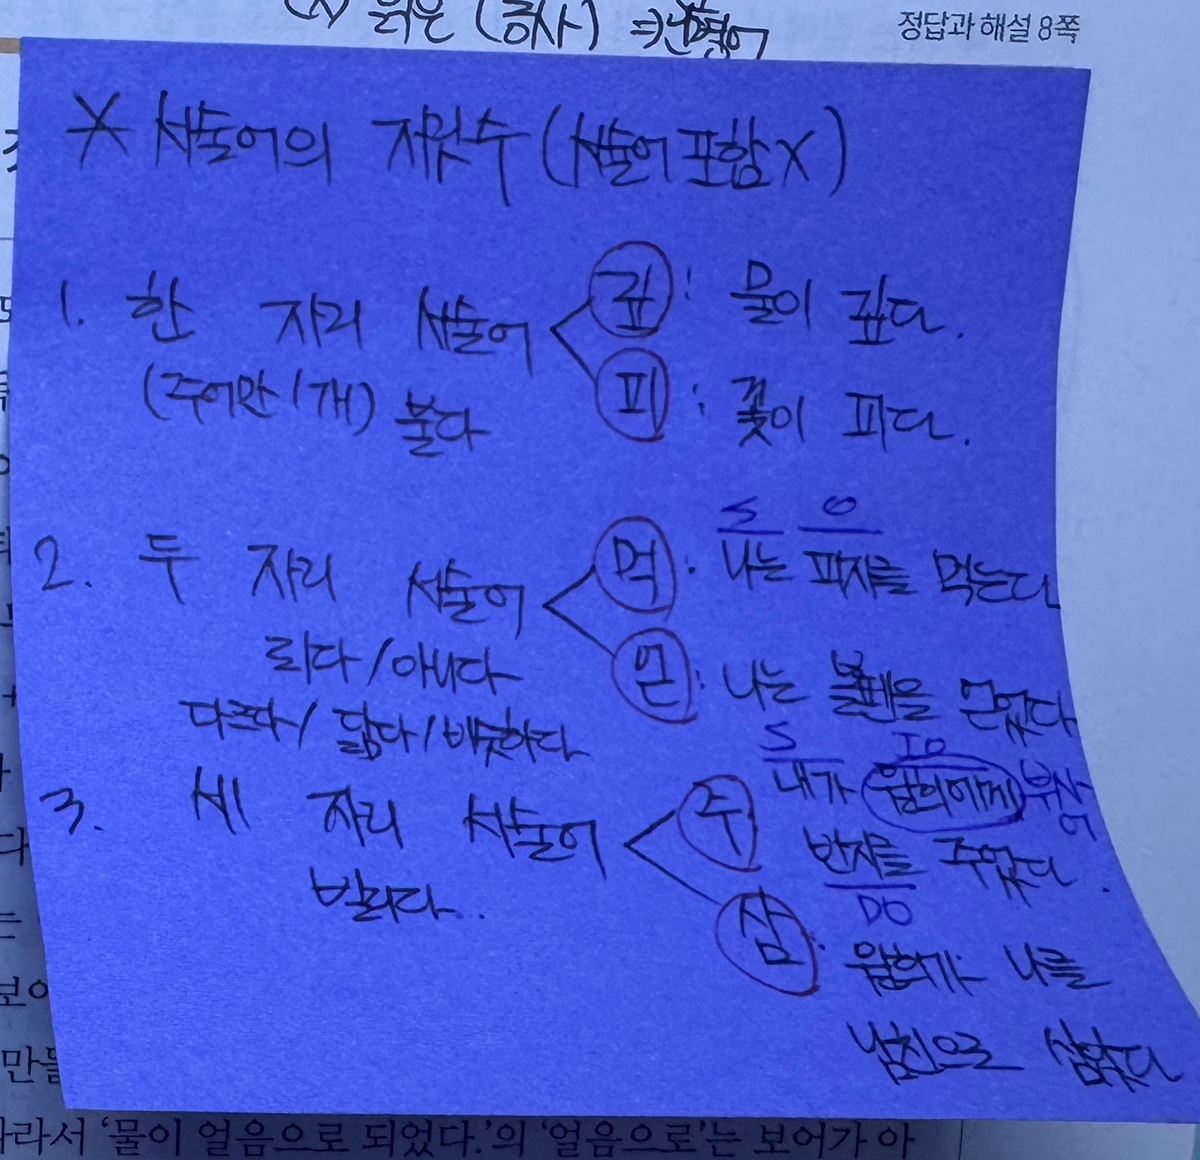 (X) 읽은 (동사) ⇒관형어
정답과 해설 8쪽
* 서술어의 자릿수 (서술어 포함 X)
1. 한 자리 서술어 < 깊 : 물이 깊다.
(주어만 1개) 불다
피 : 꽃이 피다.
S O
2. 두 자리 서술어 < 먹 : 나는 파자를 먹는다
되다 / 아니다
얻 : 나는 볼펜을 얻었다
다르다 / 닮다 / 비슷하다
S IO
3. 세 자리 서술어 < 주 내가 원희에게 부사어
반지를 주었다.
빌리다..
DO
삼 : 원희가 나를
남친으로 삼았다
보어
만들
따라서 ‘물이 얼음으로 되었다.’의 ‘얼음으로’는 보어가 아